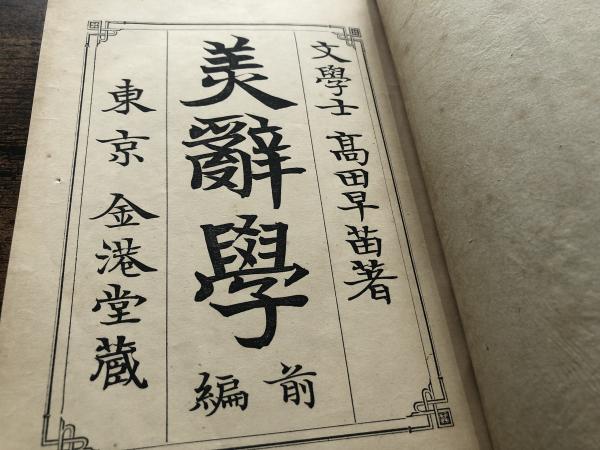 文學士 髙田早苗著
美辭學
前編
東京 金港堂蔵